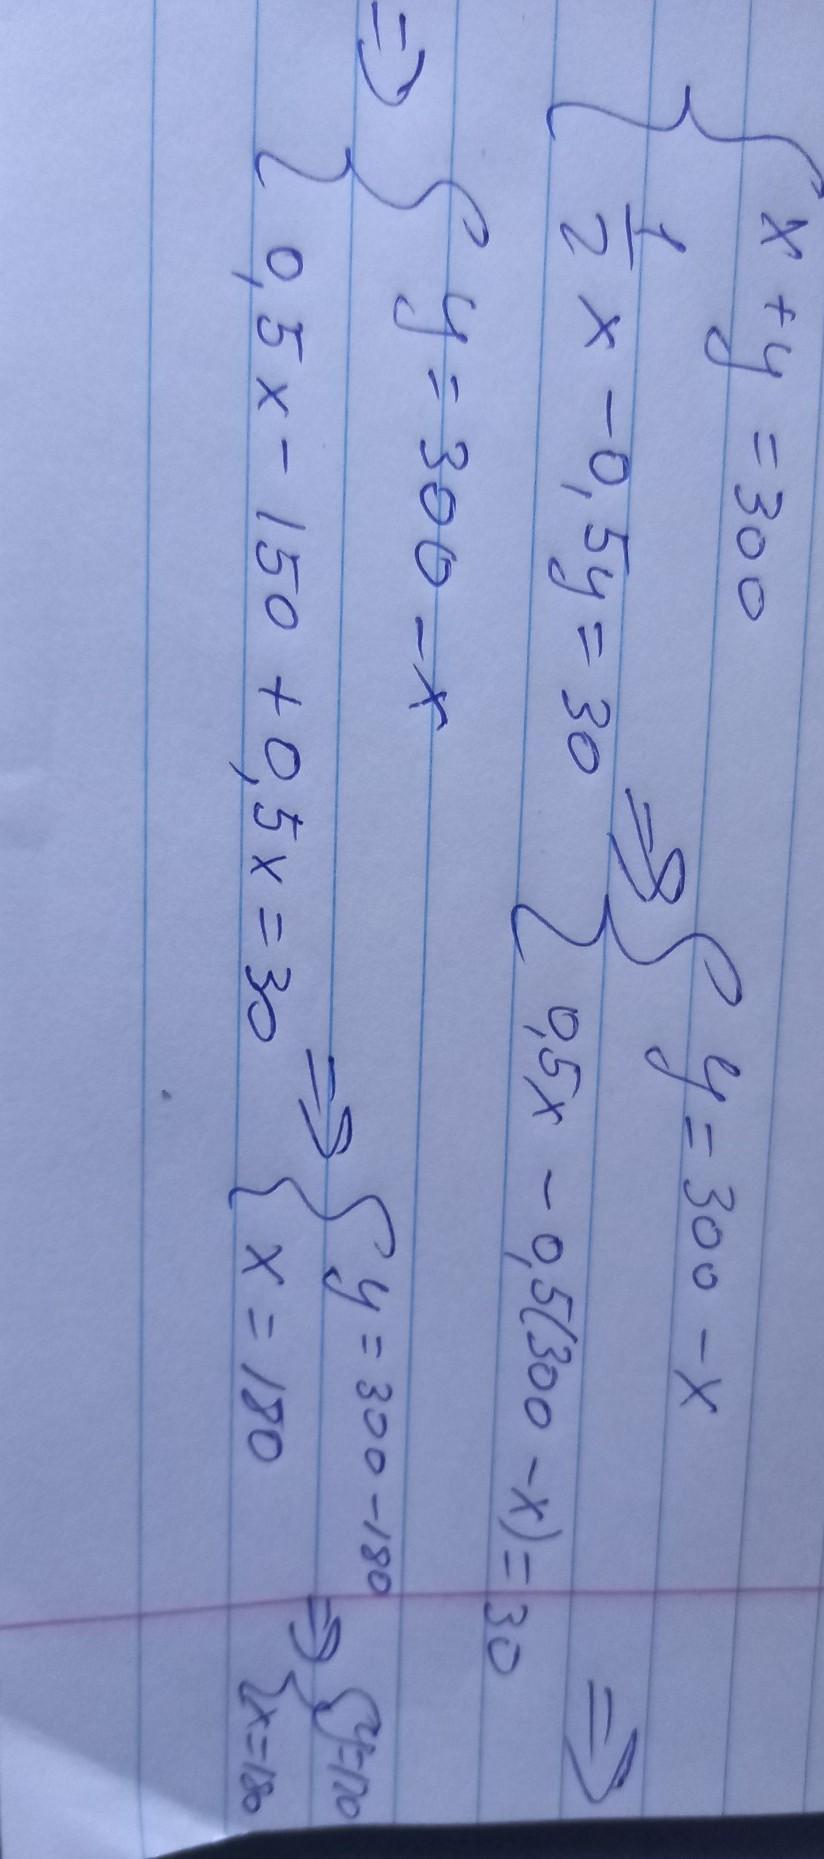 x + y = 300
1/2 x - 0,5y = 30
=> { y = 300 - x
0,5x - 0,5(300 - x) = 30 =>
=> { y = 300 - x
0,5x - 150 + 0,5x = 30
=> { y = 300 - 180
x = 180
=> { y = 120
x = 180